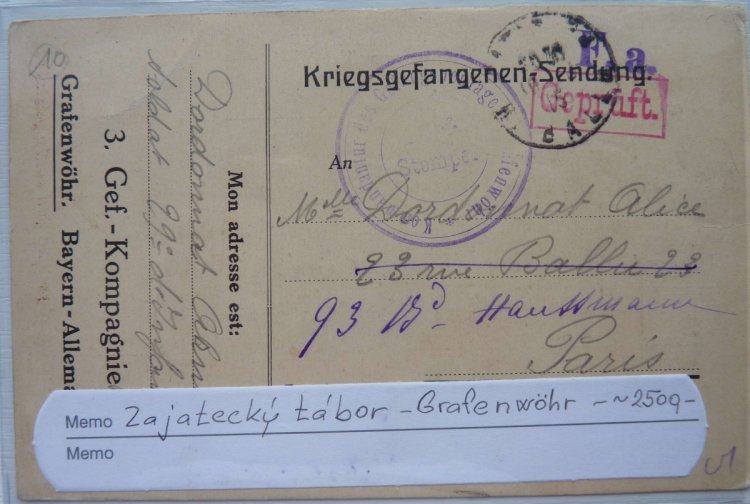 10
Kriegsgefangenen-Sendung.
F. a.
Geprüft.
PARIS
An
Mlle Dordonnat Alice
23 rue Ballu 23
93 Bd. Haussmann
Paris
Mon adresse est:
Dordonnat
soldat 99e d'Infan
3. Gef.-Kompagnie
Grafenwöhr. Bayern-Allema
Memo Zajatecký tábor - Grafenwöhr - ~2500,-
Memo